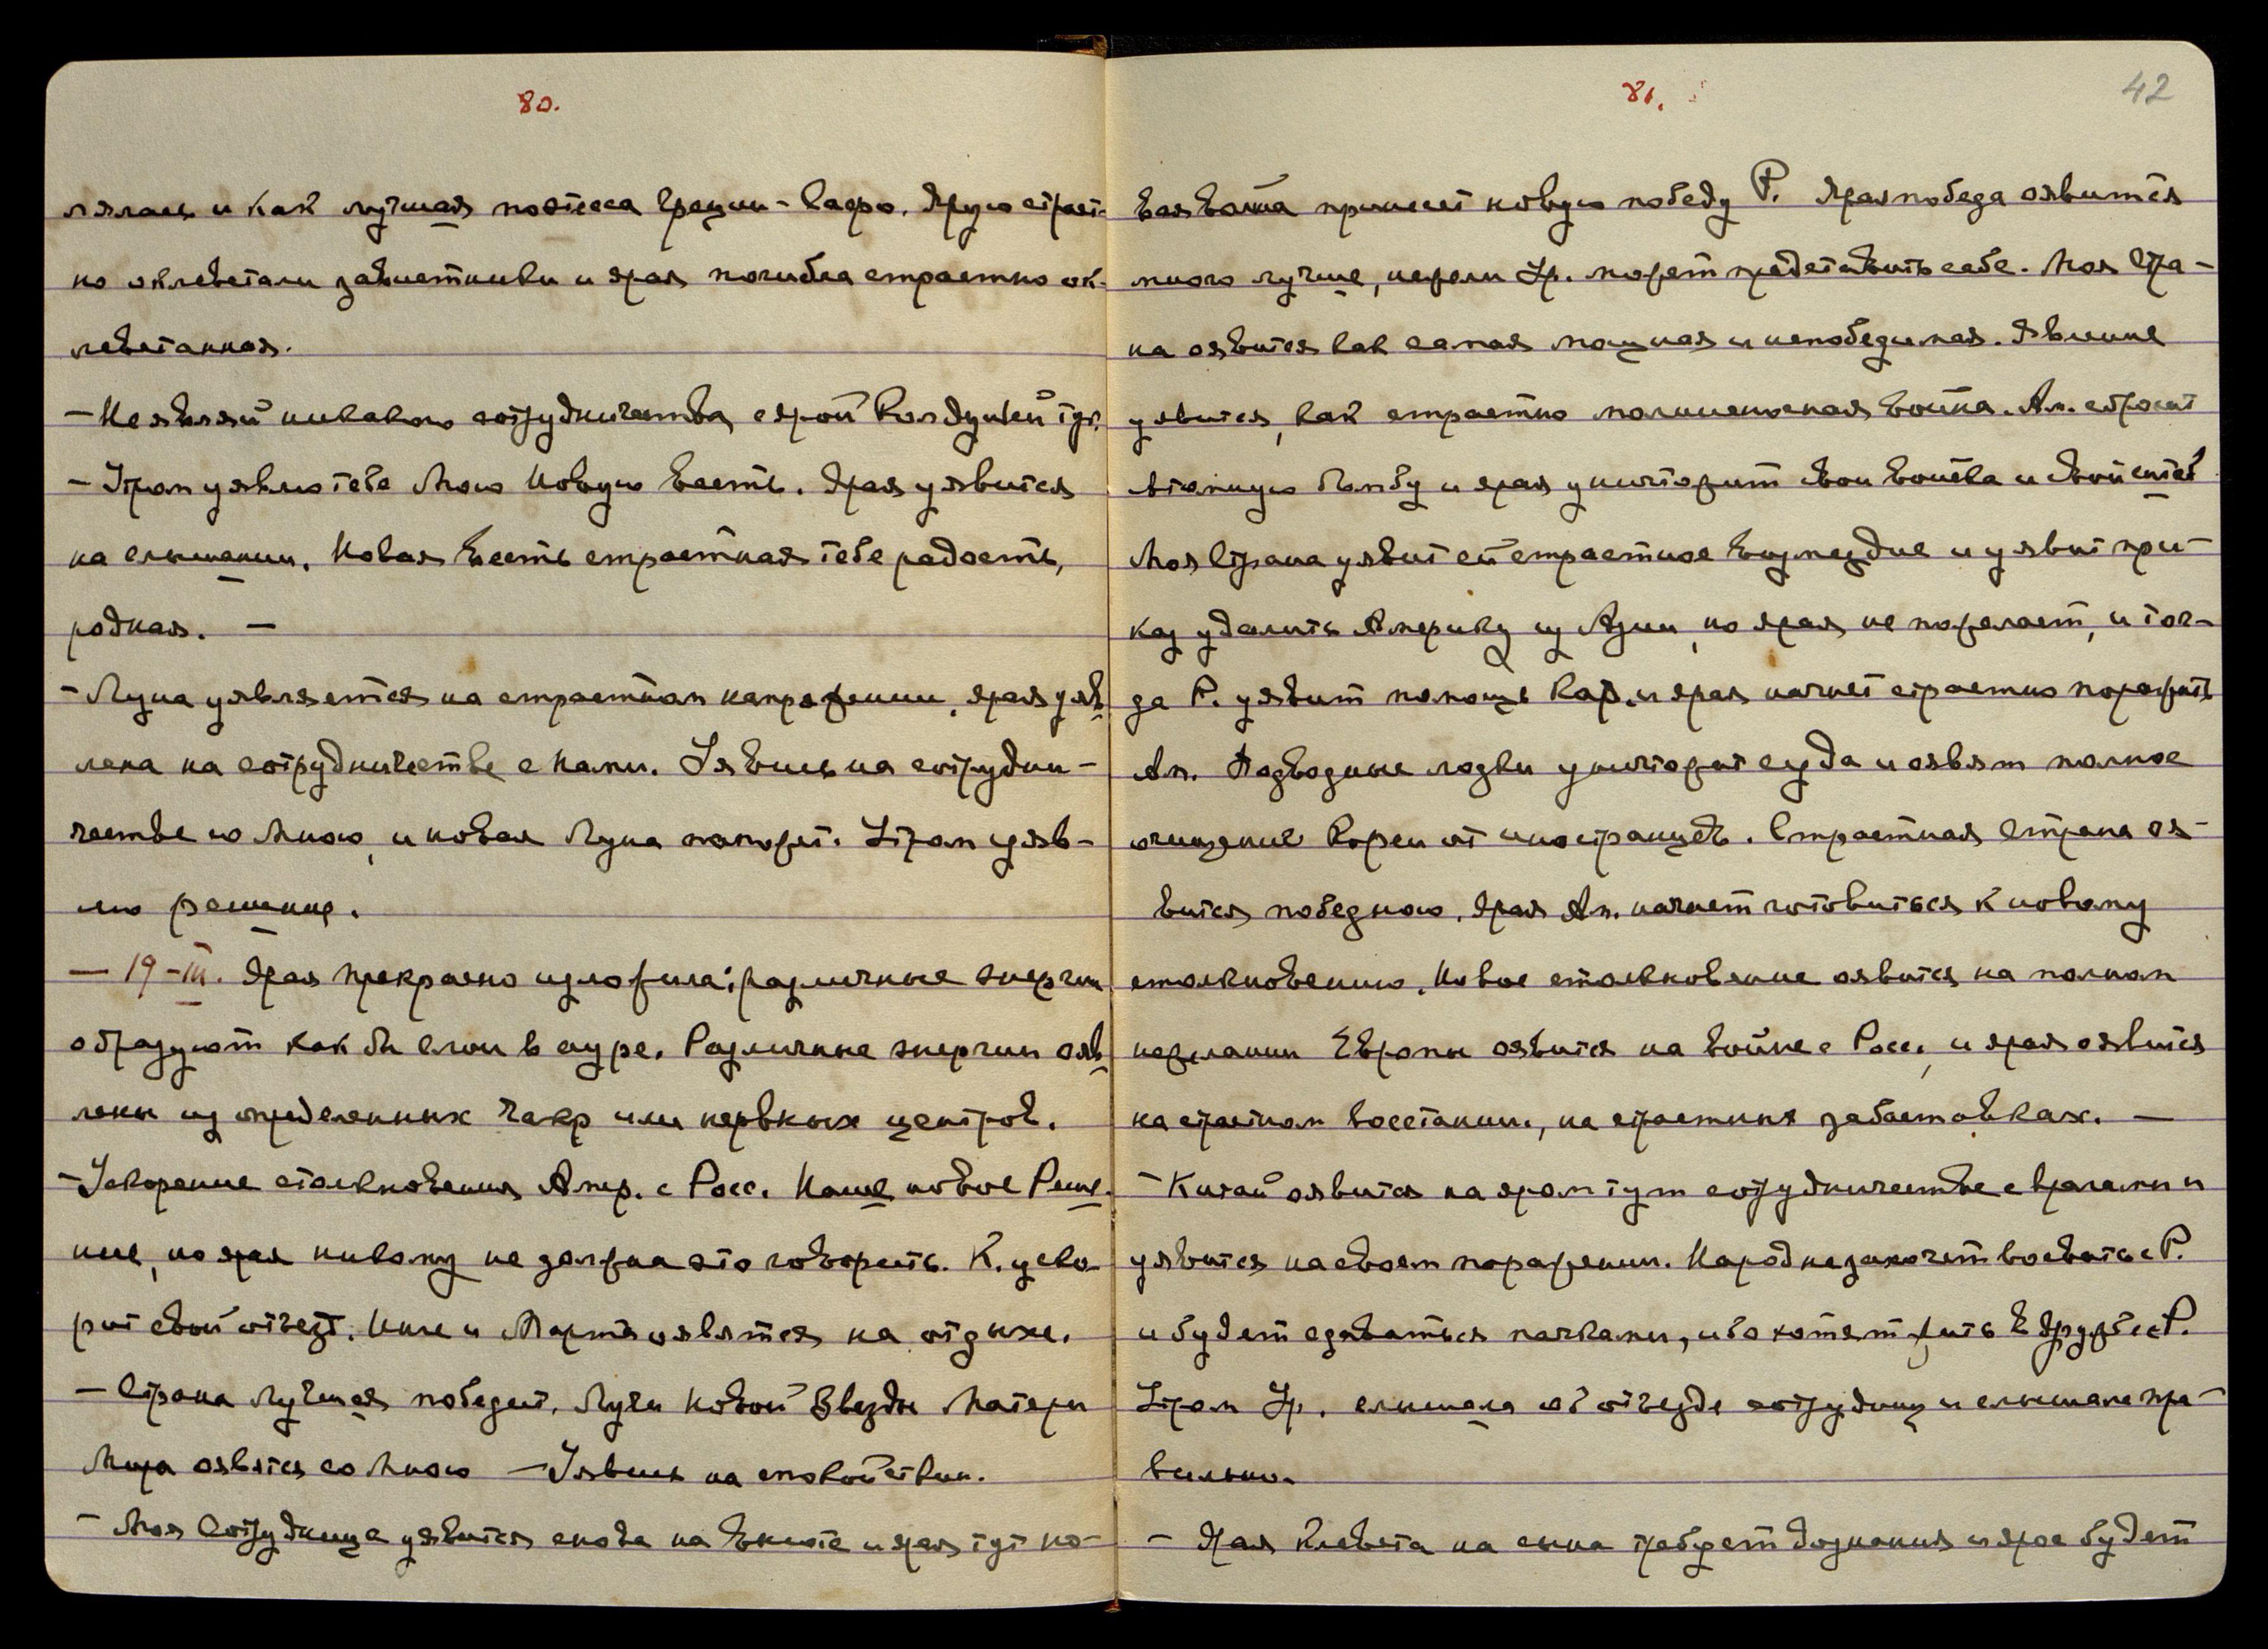 80.
лялась и как лучшая поэтесса Греции - Сафо. Ярую страст-
но оклеветали завистники и ярая погибла страстно ок-
леветанная.
— Не являй никакого сотрудничества с ярой Колдуньей тут.
— Утром уявлю тебе Мою Новую Весть. Ярая уявится
на слышании. Новая Весть страстная тебе радость,
родная. —
— Луна уявляется на страстном напряжении, ярая уяв
лена на сотрудничестве с Нами. Уявись на сотрудни-
честве со Мною, и новая Луна поможет. Утром уяв-
лю решение.
— 19-III. Ярая прекрасно изложила: различные энергии
образуют как бы слои в ауре. Различные энергииояв
лены из определенных Чакр или нервных центров.
— Ускорение столкновения Амер. с Росс. Наше новое Реше-
ние, но ярая никому не должна это говорить. К. уско-
рит свой отъезд. Ныне и Март оявятся на отдыхе.
— Страна Лучшая победит. Лучи Новой Звезды Матери
Мира оявятся со Мною — Уявись на спокойствии.
— Моя Сотрудница уявится снова на Высоте и ярая тут но-
81.
42
вая Война принесет новую победу Р. Ярая победа оявится
много лучше, нежели Ур. может представить себе. Моя Стра-
на оявится как самая мощная и непобедимая. Явление
уявится, как страстно молниеносная Война. Ам. сбросит
атомную Бомбу и ярая уничтожит свои Войска и свой штаб
Моя Страна уявит ей страстное Возмездие и уявит при-
каз удалить Америку из Азии, но ярая не пожелает, и тог-
да Р. уявит помощь Кор. и ярая начнет страстно поражать
Ам. Подводные лодки уничтожат суда и оявят полное
очищение Кореи от иностранцев. Страстная Страна оя-
вится победною. Ярая Ам. начнет готовиться к новому
столкновению. Новое столкновение оявится на полном
нежелании Европы оявится на войне с Росс., и ярая оявится
на страстном восстании, на страстных забастовках. —
— Китай оявится на яром тут сотрудничестве с врагами и
уявится на своем поражении. Народ не захочет воевать с Р.
и будет сдаваться пачками, ибо хотят жить в дружбе с Р.
Утром Ур. слышала об отъезде сотрудниц и слышала пра-
вильно.
— Ярая клевета на сына требует дознания и ярое будет